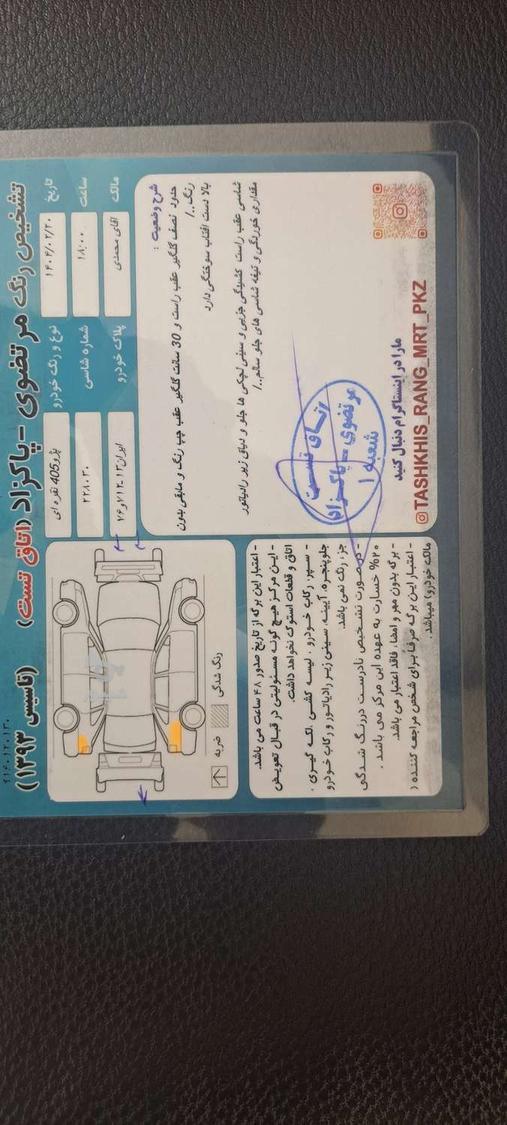 تشخیص رنگ مرتضوی - پاکزاد (اتاق تست) (تاسیس ۱۳۹۳)
مالک
آقای محمدی
پلاک خودرو
ساعت
۱۸:۰۰
شماره شاسی
۲۲۸۰۳۰
تاریخ
۱۴۰۴/۰۲/۲۰
نوع و رنگ خودرو
پژو405 نقره ای
شرح وضعیت :
حدود نصف گلگیر عقب راست و 30 سانت گلگیر عقب چپ رنگ و مابقی بدون
رنگ./
بالا دست آفتاب سوختگی دارد
شاسی عقب راست کشیدگی جزیی و سینی لچکی ها جلو و دیاق زیر رادیاتور
مقداری خوردگی و تیغه شاسی های جلو سالم./
اتاق تست
مرتضوی - پاکزاد
شعبه ۱
ما را در اینستاگرام دنبال کنید
@TASHKHIS_RANG_MRT_PKZ
ضربه
رنگ شدگی
- اعتبار این برگه از تاریخ صدور ۴۸ ساعت می باشد.
- این مرکز هیچ گونه مسئولیتی در قبال تعویض
اتاق و قطعات استوک نخواهد داشت.
- سپر، رکاب خودرو، لیسه کشی، لکه گیری،
جلو پنجره، آیینه، سینی زیر رادیاتور و رکاب خودرو
جزء رنگ نمی باشد.
- در صورت تشخیص نادرست در رنگ شدگی
۲۰% خسارت به عهده این مرکز می باشد.
- برگه بدون مهر و امضا، فاقد اعتبار می باشد.
- اعتبار این برگه صرفا برای شخص مراجعه کننده (
مالک خودرو) میباشد.